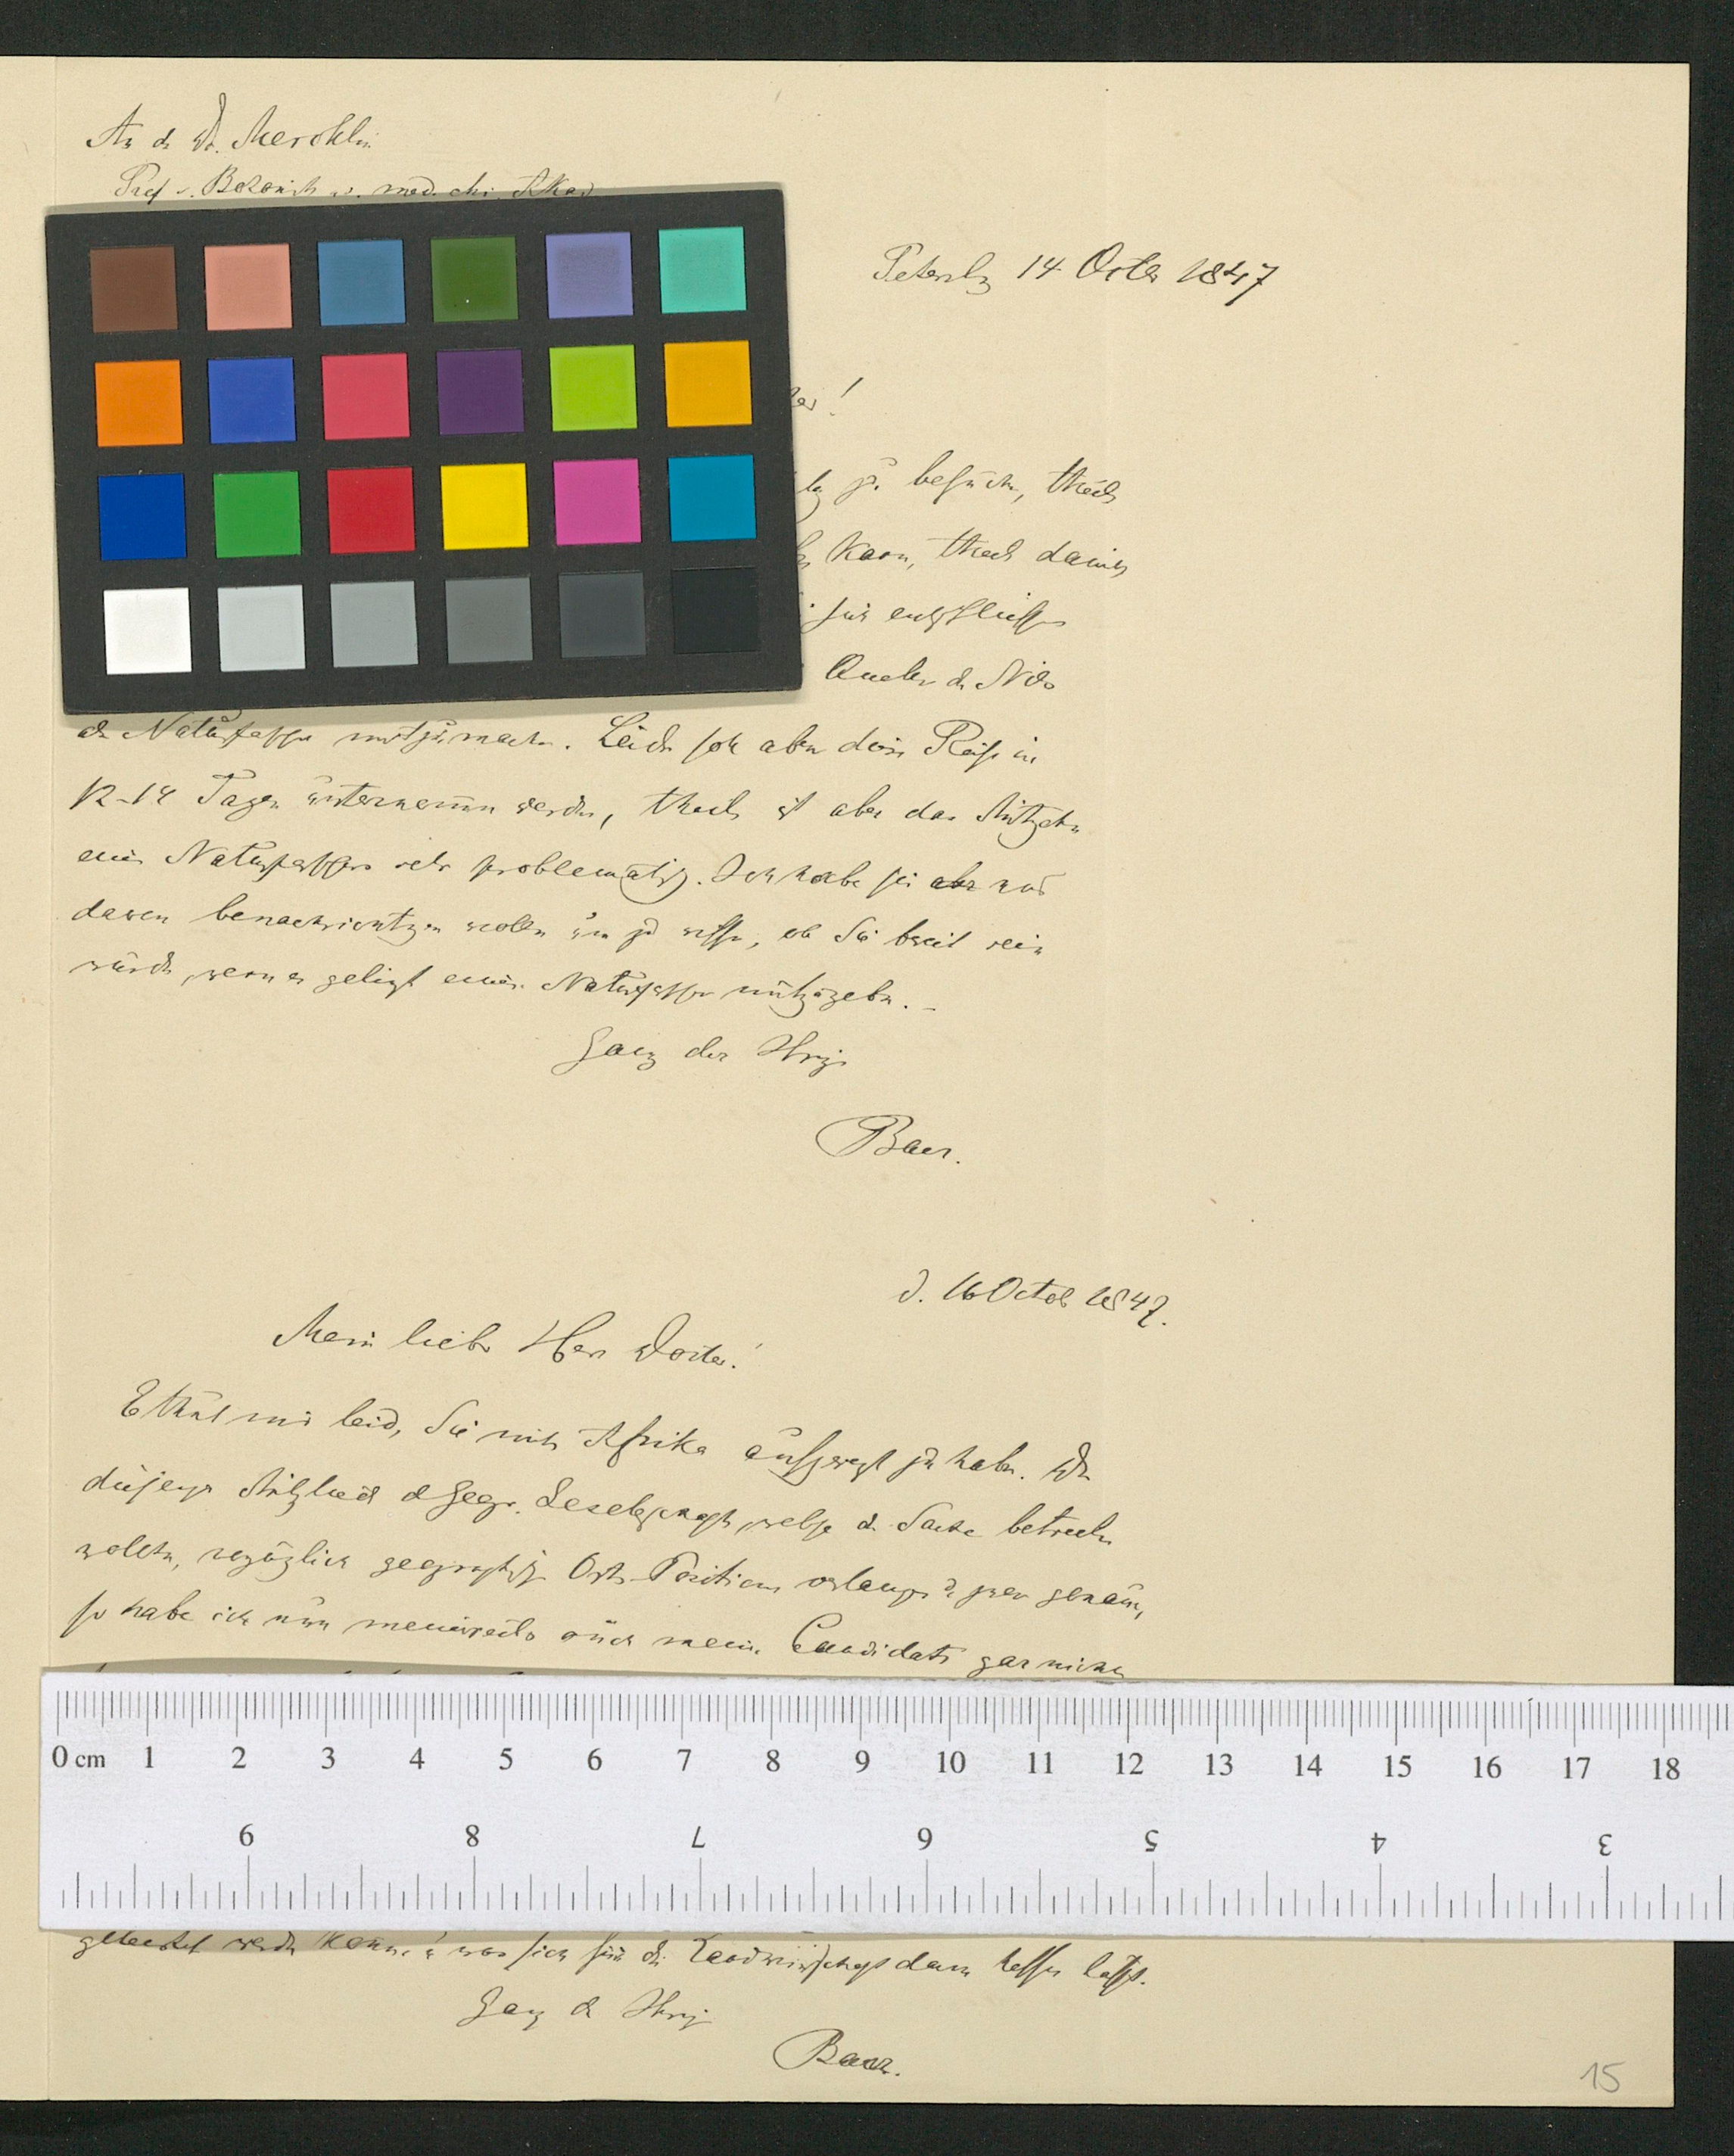 An d. Dr. Merklin
Prof. d. Botanik a. d. med. chi. Akad
Petersbg 14 Octbr 1847
zu besuchen, theils
kann, theils damit
sich entschliessen
Quellen d. Nils
als Naturforscher mitzumachen. Leider soll aber diese Reise in
12-14 Tagen unternommen werden, theils ist aber das Mitgehn
eines Naturforschers sehr problematisch. Ich habe Sie aber nur
davon benachrichtigen wollen um zu wissen, ob Sie bereit sein
würden, wenn es gelingt einen Naturforscher mitzugeben. –
Ganz der Ihrige
Baer.
d. 16 Octob 1847.
Mein lieber Herr Doctor!
Es thut mir leid, Sie mit Afrika aufgeregt zu haben. Da
diejenigen Mitglieder d Geogr. Gesellschaft, welche die Sache betreiben
wollten, vorzüglich geographische Orts-Positionen verlangen u. zwar genaue,
so habe ich nun meinerseits auch meinen Candidaten gar nicht
geleistet werden könne u was sich für die Landwirthschaft dann hoffen lässt.
Ganz der Ihrige
Baer.
15
0 cm 1 2 3 4 5 6 7 8 9 10 11 12 13 14 15 16 17 18
9 8 7 6 5 4 3